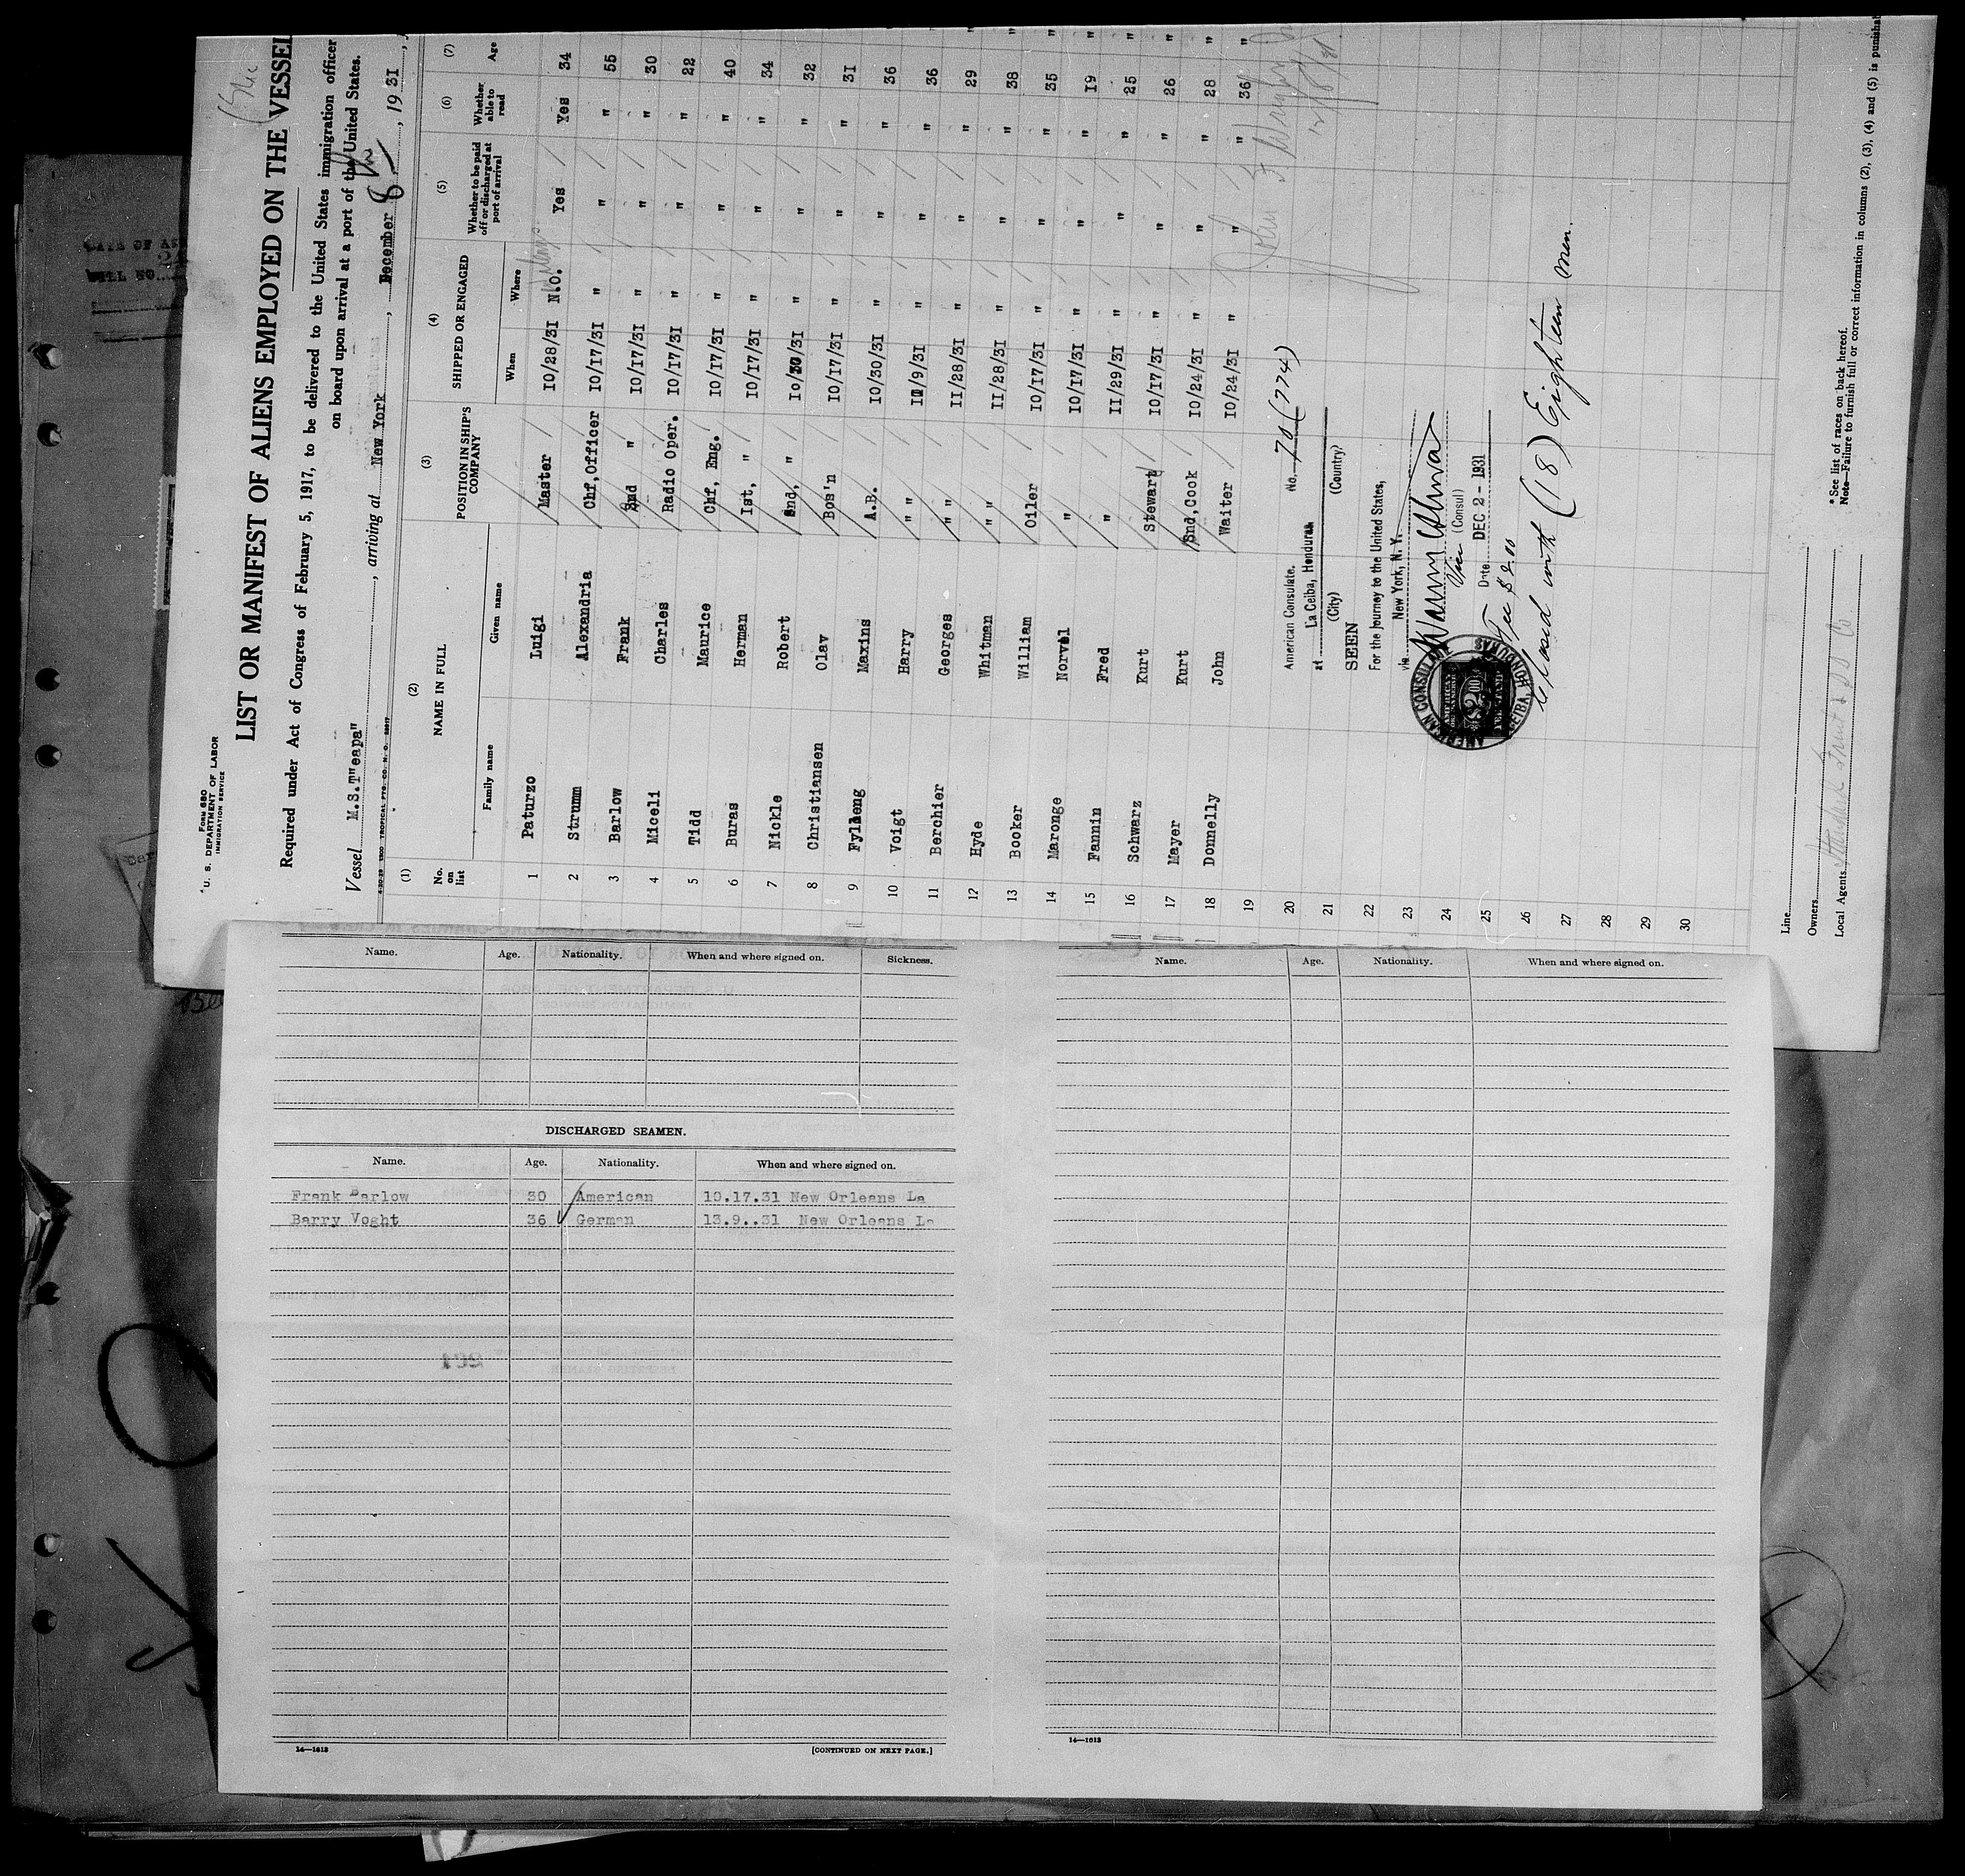 FORM 680
U. S. DEPARTMENT OF LABOR
IMMIGRATION SERVICE
LIST OR MANIFEST OF ALIENS EMPLOYED ON THE VESSEL
Required under Act of Congress of February 5, 1917, to be delivered to the United States immigration officer
on board upon arrival at a port of the United States.
Vessel M.S.T"eapa" , arriving at New York , December 8th , 19 31
(1) (2) (3) (4) (5) (6) (7)
No. on list NAME IN FULL POSITION IN SHIP'S COMPANY SHIPPED OR ENGAGED Whether to be paid off or discharged at port of arrival Whether able to read Age
Family name Given name When Where
1 Paturzo Luigi Master 10/28/31 N.O. Yes Yes 34
2 Strumm Alexandria Chf,Officer 10/17/31 " " " 55
3 Barlow Frank 2nd " 10/17/31 " " " 30
4 Miceli Charles Radio Oper. 10/17/31 " " " 22
5 Tidd Maurice Chf, Eng. 10/17/31 " " " 40
6 Buras Herman Ist, " 10/17/31 " " " 34
7 Nickle Robert 2nd, " 10/30/31 " " " 32
8 Christiansen Olav Bos'n 10/17/31 " " " 31
9 Fylheng Maxins A.B. 10/30/31 " " " 36
10 Voigt Harry " " 11/9/31 " " " 36
11 Berchier Georges " " 11/28/31 " " " 29
12 Hyde Whitman " " 11/28/31 " " " 38
13 Booker William Oiler 10/17/31 " " " 35
14 Maronge Norvel " 10/17/31 " " " 19
15 Fannin Fred " 11/29/31 " " " 25
16 Schwarz Kurt Stewart 10/17/31 " " " 26
17 Mayer Kurt 2nd,Cook 10/24/31 " " " 28
18 Donnelly John Waiter 10/24/31 " " " 36
19
20
21
22
23
24
25
26
27
28
29
30
American Consulate. No. 70 (774)
at La Ceiba, Honduras
(City) (Country)
SEEN
For the journey to the United States,
via New York, N. Y.
Vice (Consul)
Date DEC 2 - 1931
Fee $2.00
AMERICAN CONSULAR
CEIBA, HONDURAS
Closed with (18) Eighteen men.
Line
Owners
Local Agents Standard Fruit & S S Co
* See list of races on back hereof.
Note—Failure to furnish full or correct information in columns (2), (3), (4) and (5) is punishab
Name. Age. Nationality. When and where signed on. Sickness.
DISCHARGED SEAMEN.
Name. Age. Nationality. When and where signed on.
Frank Barlow 30 American 10.17.31 New Orleans La
Barry Voght 36 German 13.9..31 New Orleans La
14—1613 [CONTINUED ON NEXT PAGE.]
Name. Age. Nationality. When and where signed on.
14—1613